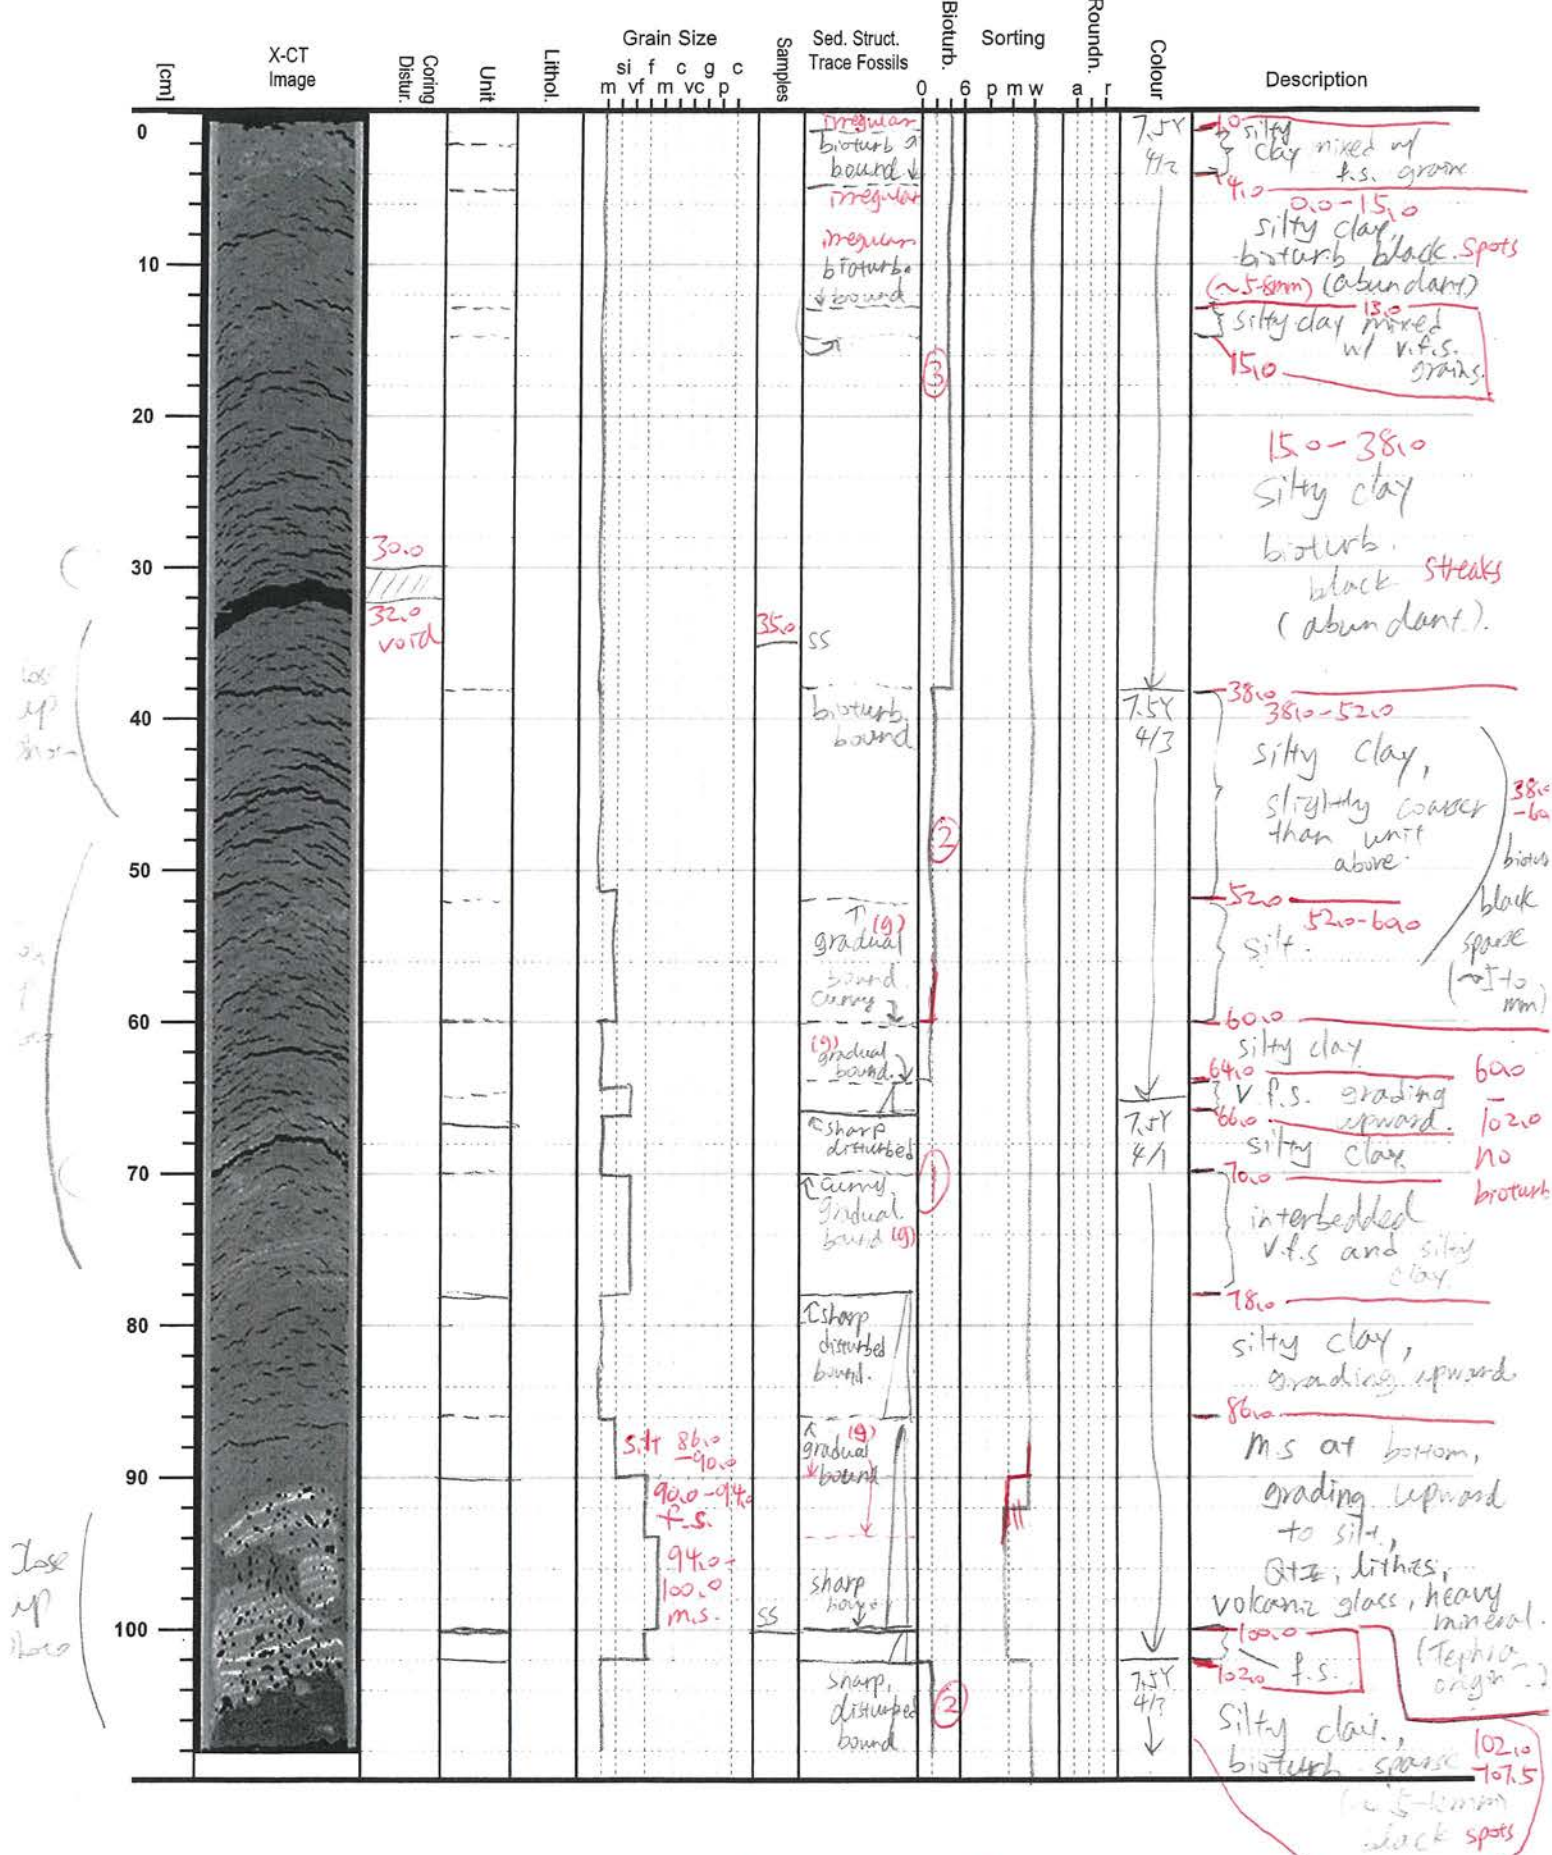 [cm]
X-CT
Image
Coring
Distur.
Unit
Lithol.
Grain Size
si f c g c
m vf m vc p
Samples
Sed. Struct.
Trace Fossils
Bioturb.
0 6
Sorting
p m w
Roundn.
a r
Colour
Description
0
10
20
30
40
50
60
70
80
90
100
30.0
32.0
void
silt 86.0
-90.0
90.0-94.0
f.s.
94.0-
100.0
m.s.
35.0
SS
SS
irregular
bioturb
bound
irregular
irregular
bioturb.
bound
bioturb.
bound
gradual (g)
bound
curvy
(g)
gradual
bound.
sharp
disturbed
curvy
gradual
bound (g)
sharp
disturbed
bound.
(g)
gradual
bound
sharp
sharp,
disturbed
bound
3
2
1
2
7.5Y
4/2
7.5Y
4/3
7.5Y
4/1
7.5Y
silty
clay mixed w/
f.s. grains
4.0
0.0-15.0
silty clay,
bioturb black spots
(~5-8mm) (abundant)
13.0
silty clay mixed
w/ v.f.s.
grains.
15.0
15.0-38.0
silty clay
bioturb.
black streaks
(abundant).
38.0
38.0-52.0
silty clay,
slightly coarser
than unit
above.
52.0
52.0-60.0
silt.
black
sparse
mm)
60.0
silty clay
64.0
v.f.s. grading
upward.
66.0
silty clay
60.0
-
102.0
no
bioturb
70.0
interbedded
v.f.s and silty
clay.
78.0
silty clay,
grading upward.
86.0
m.s at bottom,
grading upward
to silt,
Qtz, lithics,
volcanic glass, heavy
mineral.
(Tephra
origin
100.0
f.s.
102.0
silty clay.,
bioturb sparse
102.0
107.5
black spots
Close
up